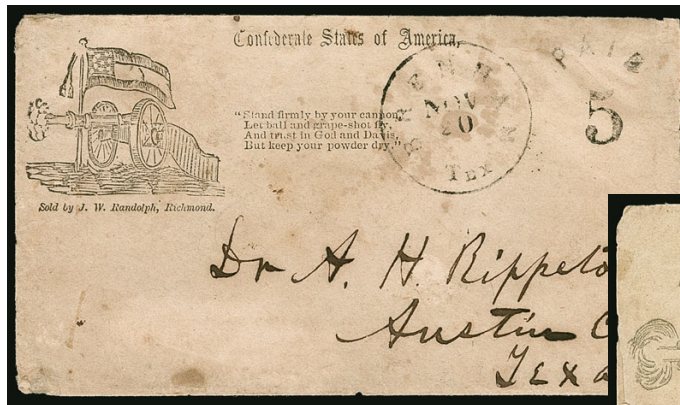 Confederate States of America,
PAID
5
"Stand firmly by your cannon,
Let ball and grape-shot fly,
And trust in God and Davis,
But keep your powder dry."
BRENHAM
NOV
20
TEX
Sold by J. W. Randolph, Richmond.
Dr A. H. Rippeto
Austin C
Texa